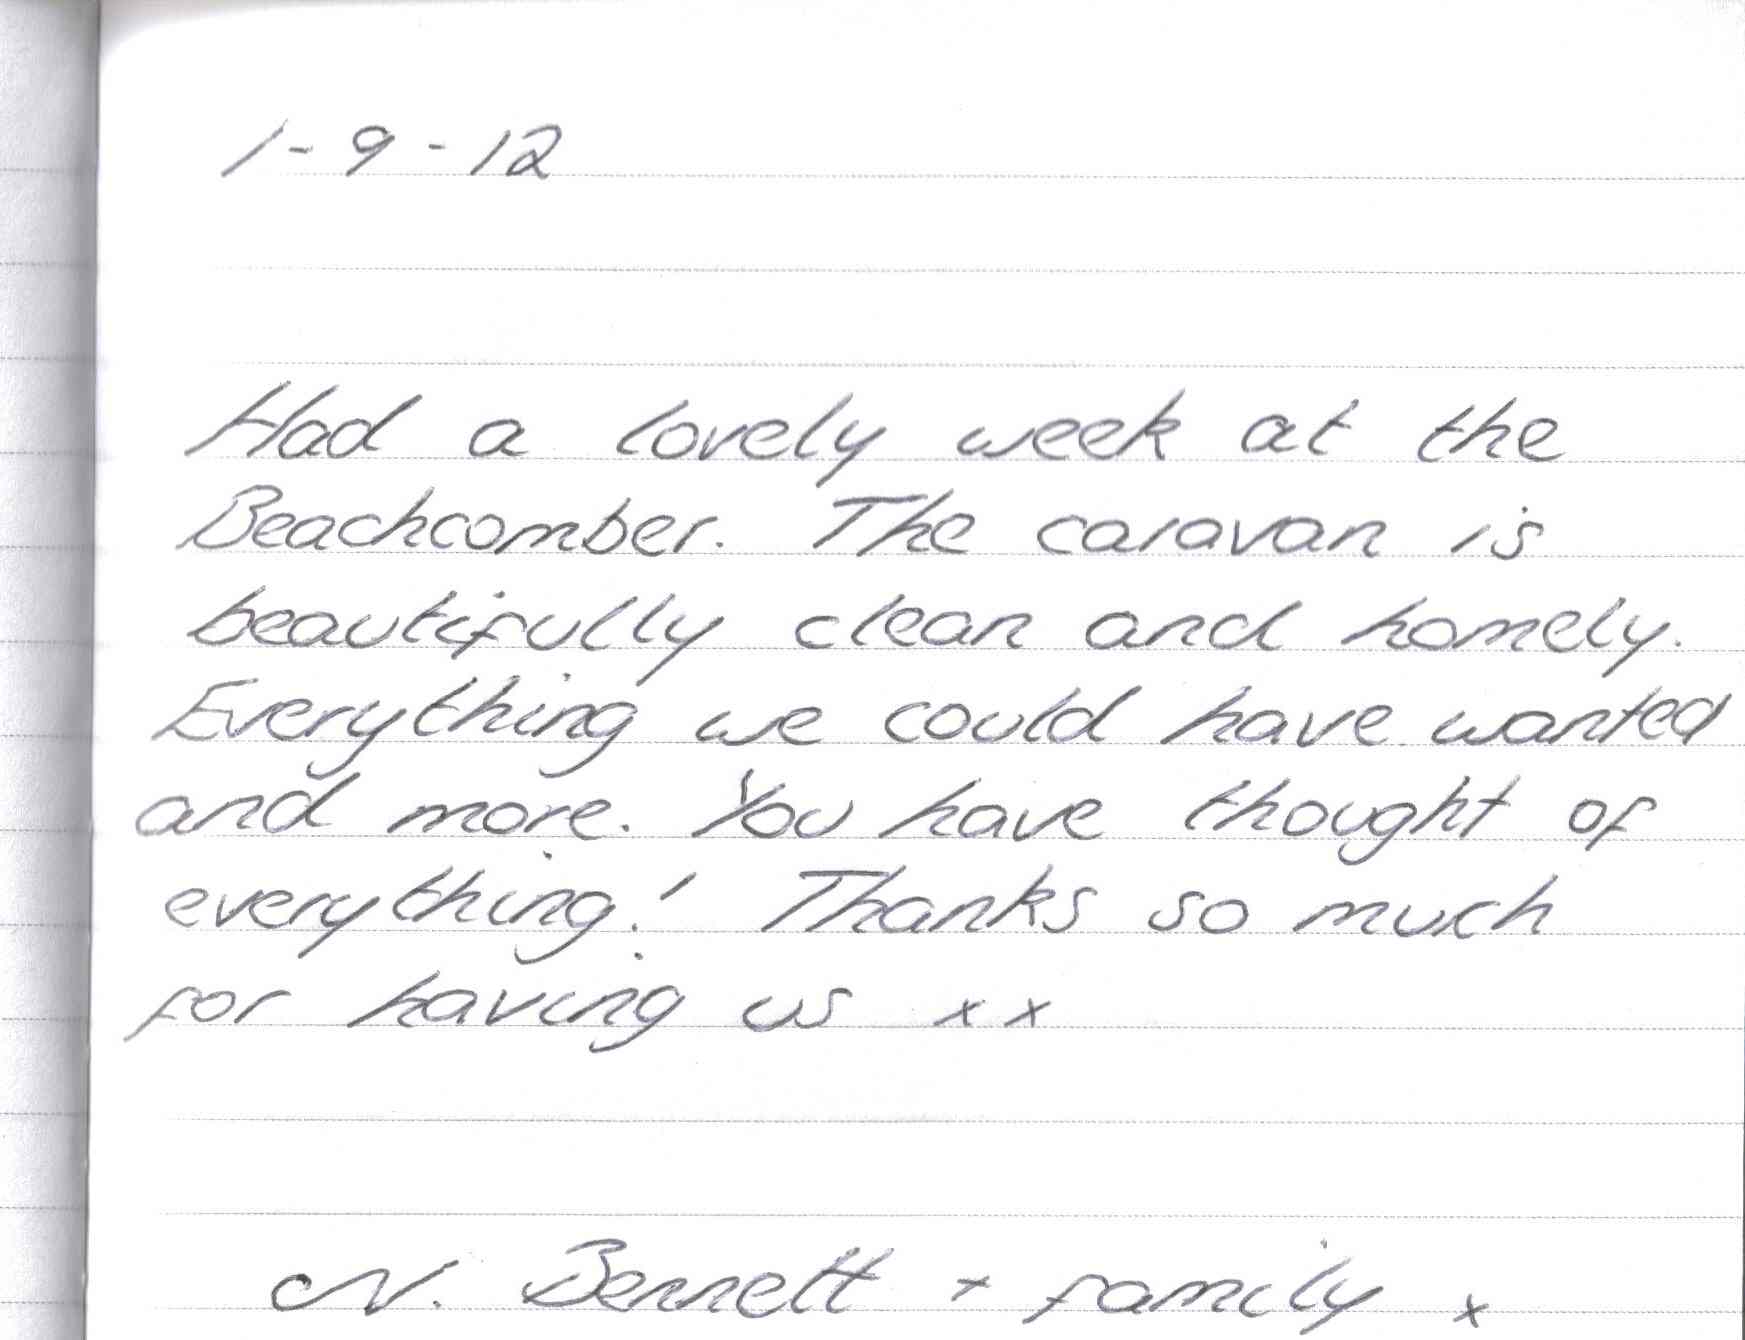 1-9-12
Had a lovely week at the
Beachcomber. The caravan is
beautifully clean and homely.
Everything we could have wanted
and more. You have thought of
everything! Thanks so much
for having us xx
N. Bennett + family x